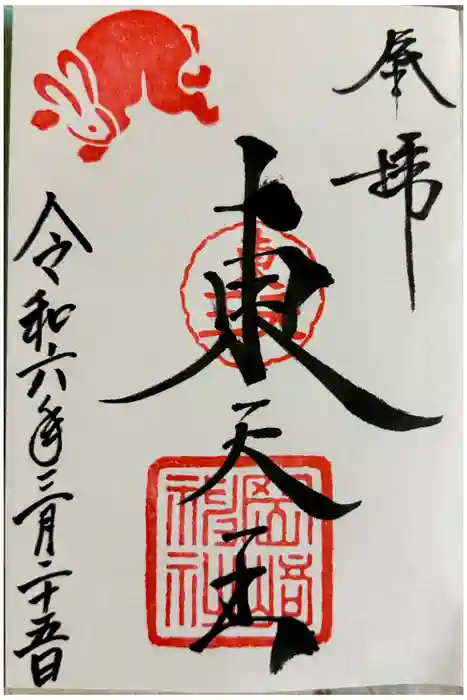 奉拝
東天王
岡崎
神社
令和六年三月二十五日